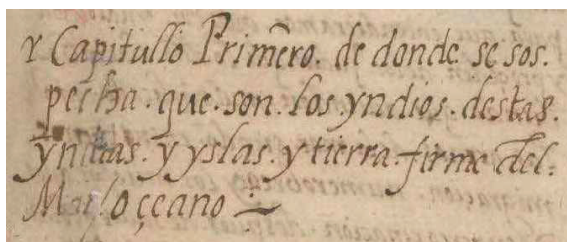 Y Capitullo Primero. de donde se sos.
pecha. que. son. los. yndios. destas.
yndias. y yslas. y tierra firme del.
Mar oçeano